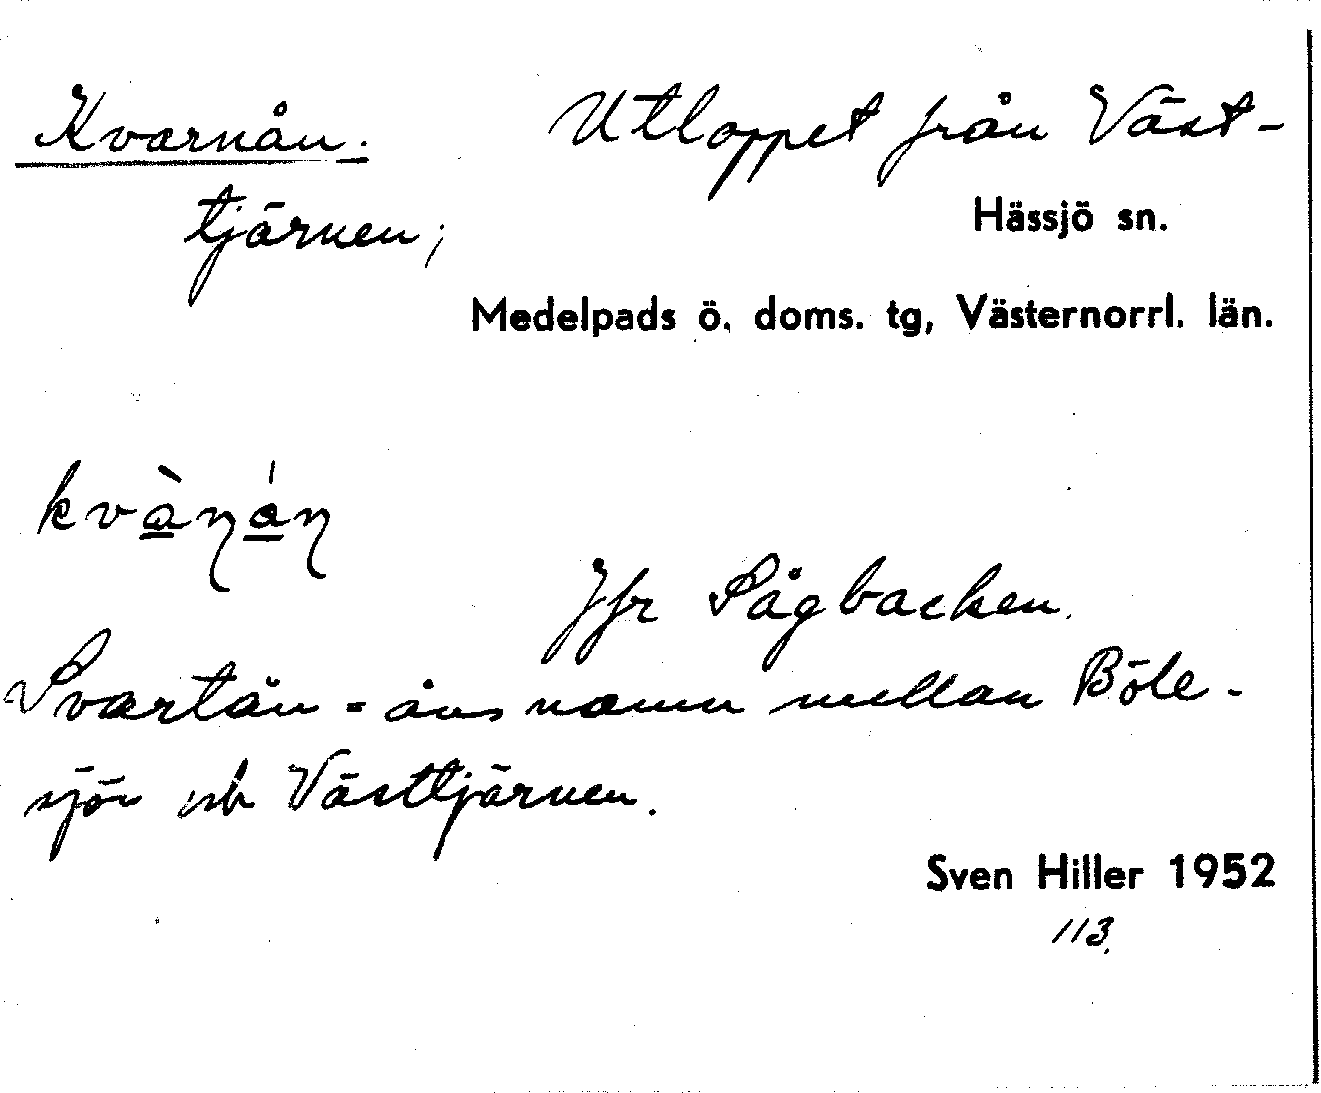 Kvarnån. Utloppet från Väst-
Hässjö sn.
tjärnen;
Medelpads ö. doms. tg, Västernorrl. län.
Jfr Sågbacken.
Svartån = åns namn mellan Böle-
sjön och Västtjärnen.
Sven Hiller 1952
113.